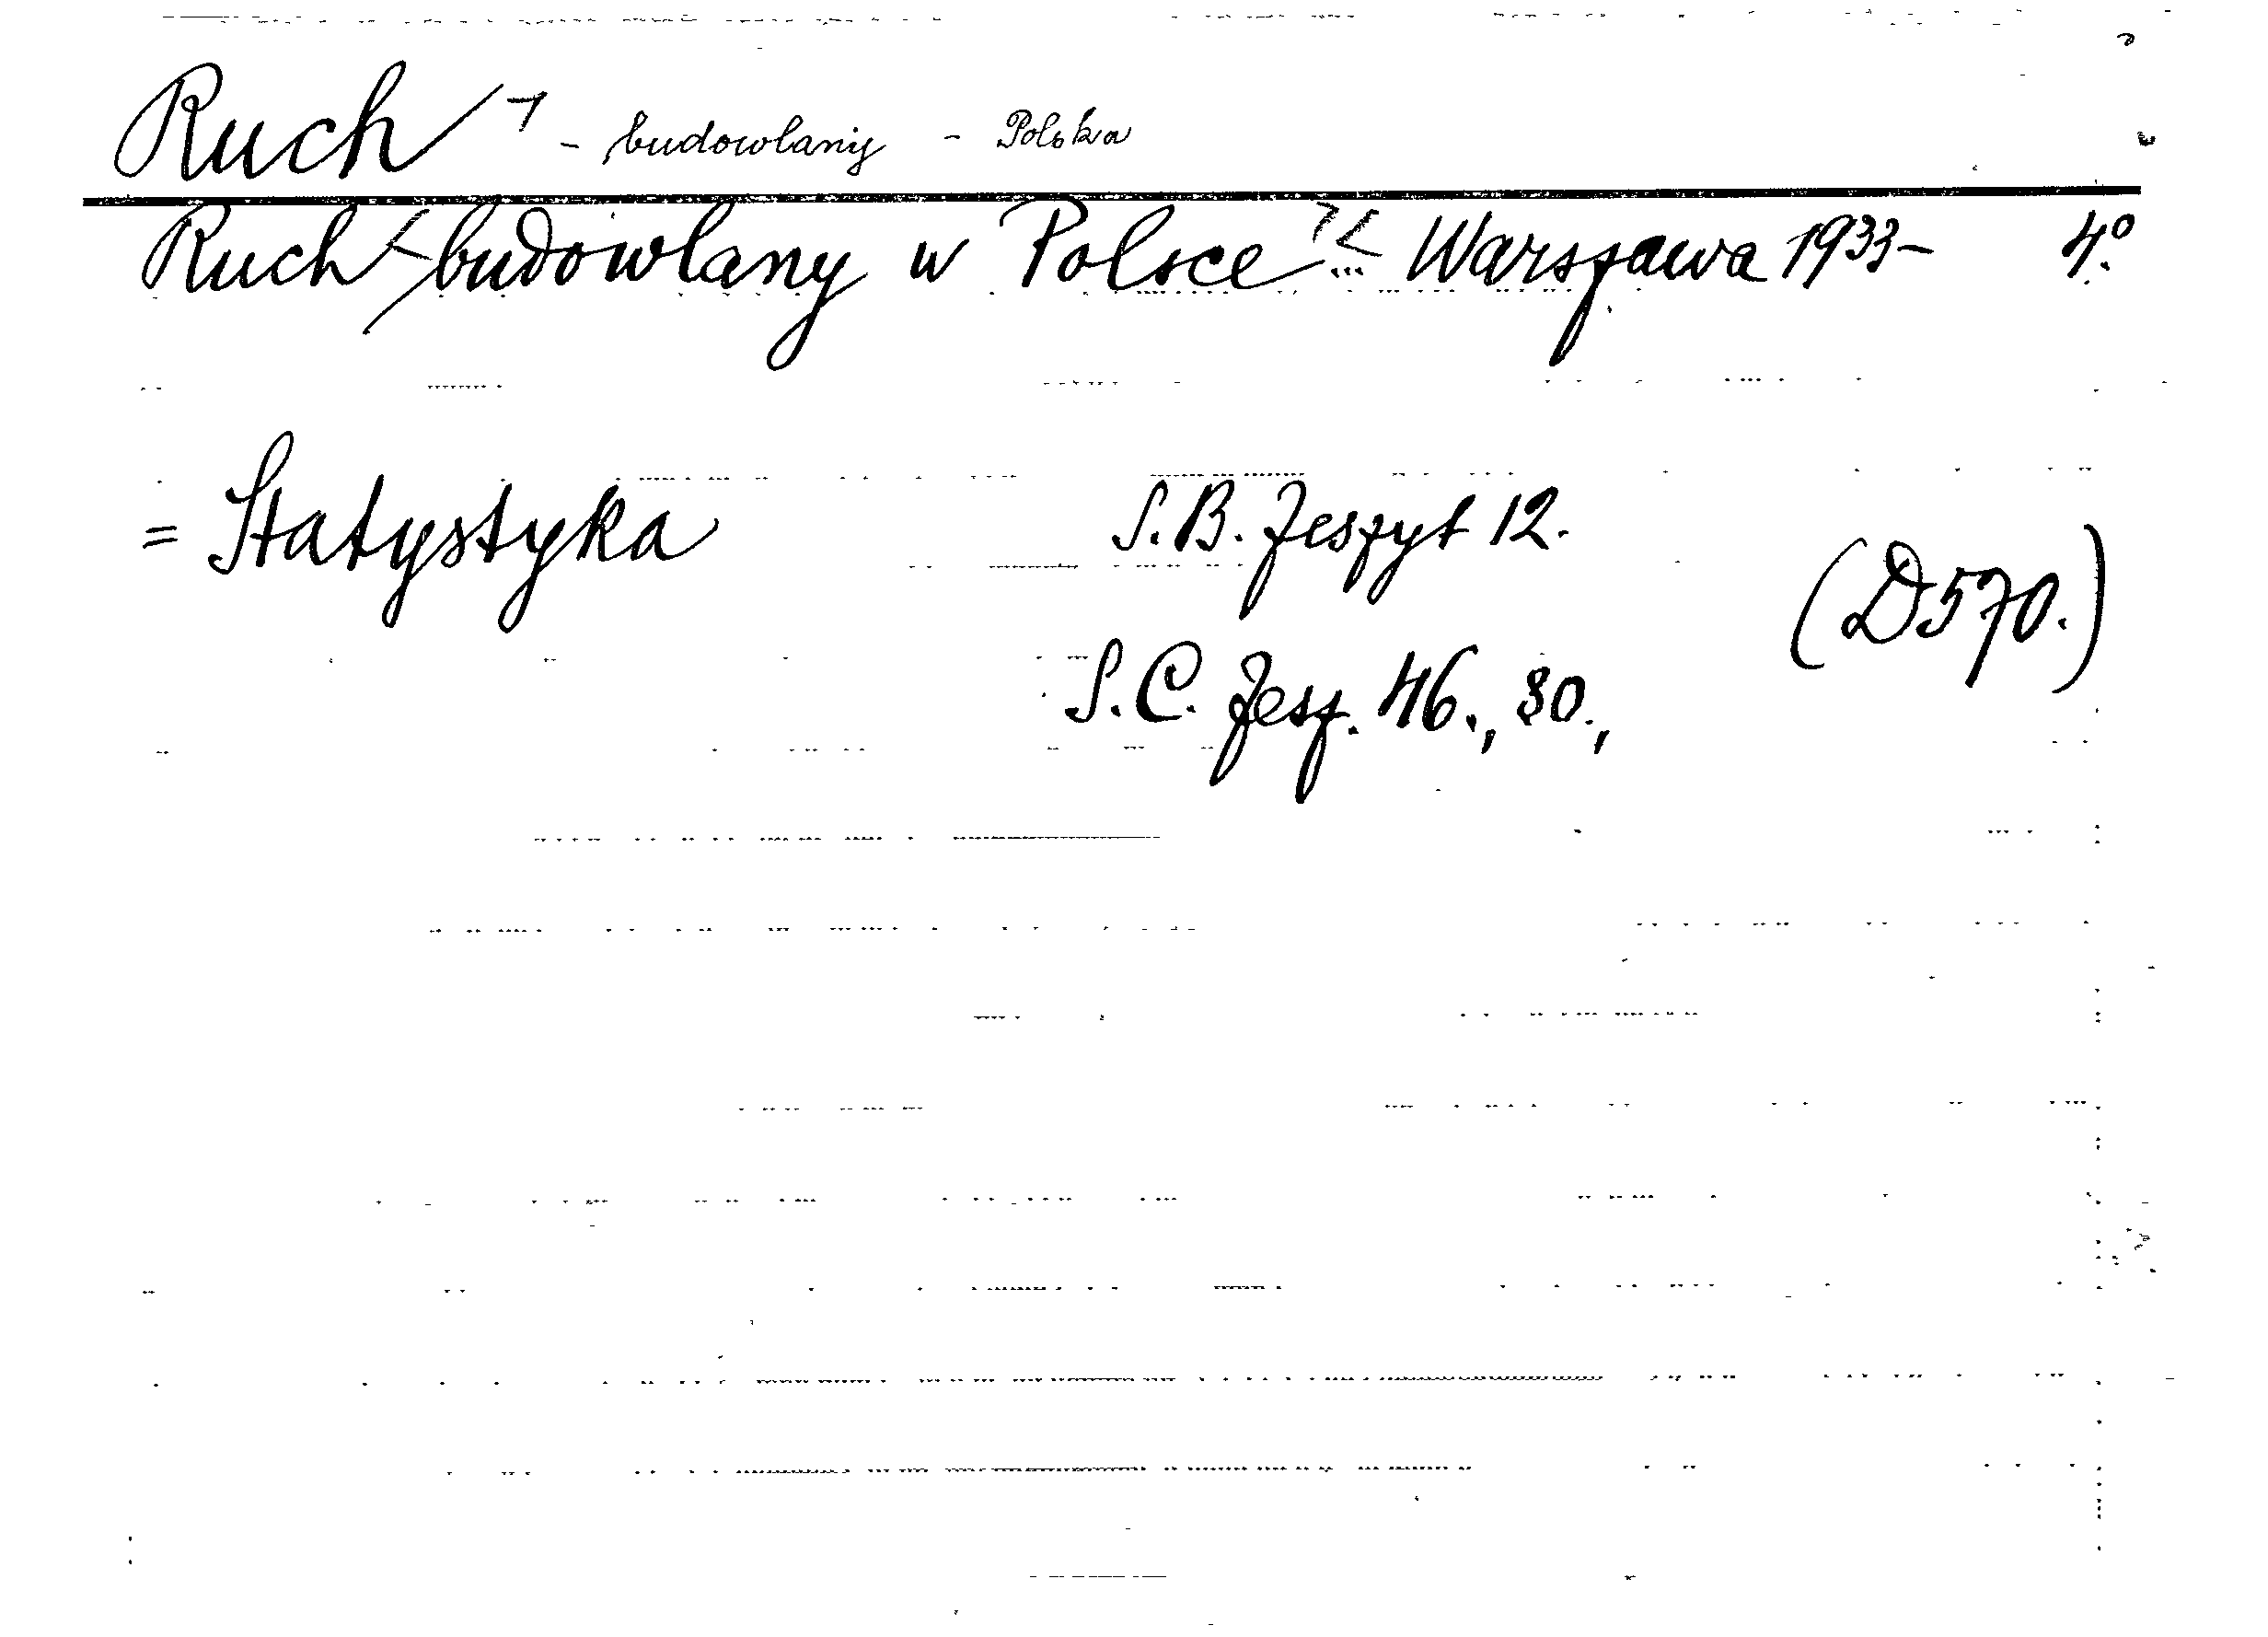 Ruch - budowlany - Polska
Ruch budowlany w Polsce ... Warszawa 1933- 4°.
= Statystyka S.B. Zeszyt 12.
(D570.)
S.C. Zesz. 46., 80.,